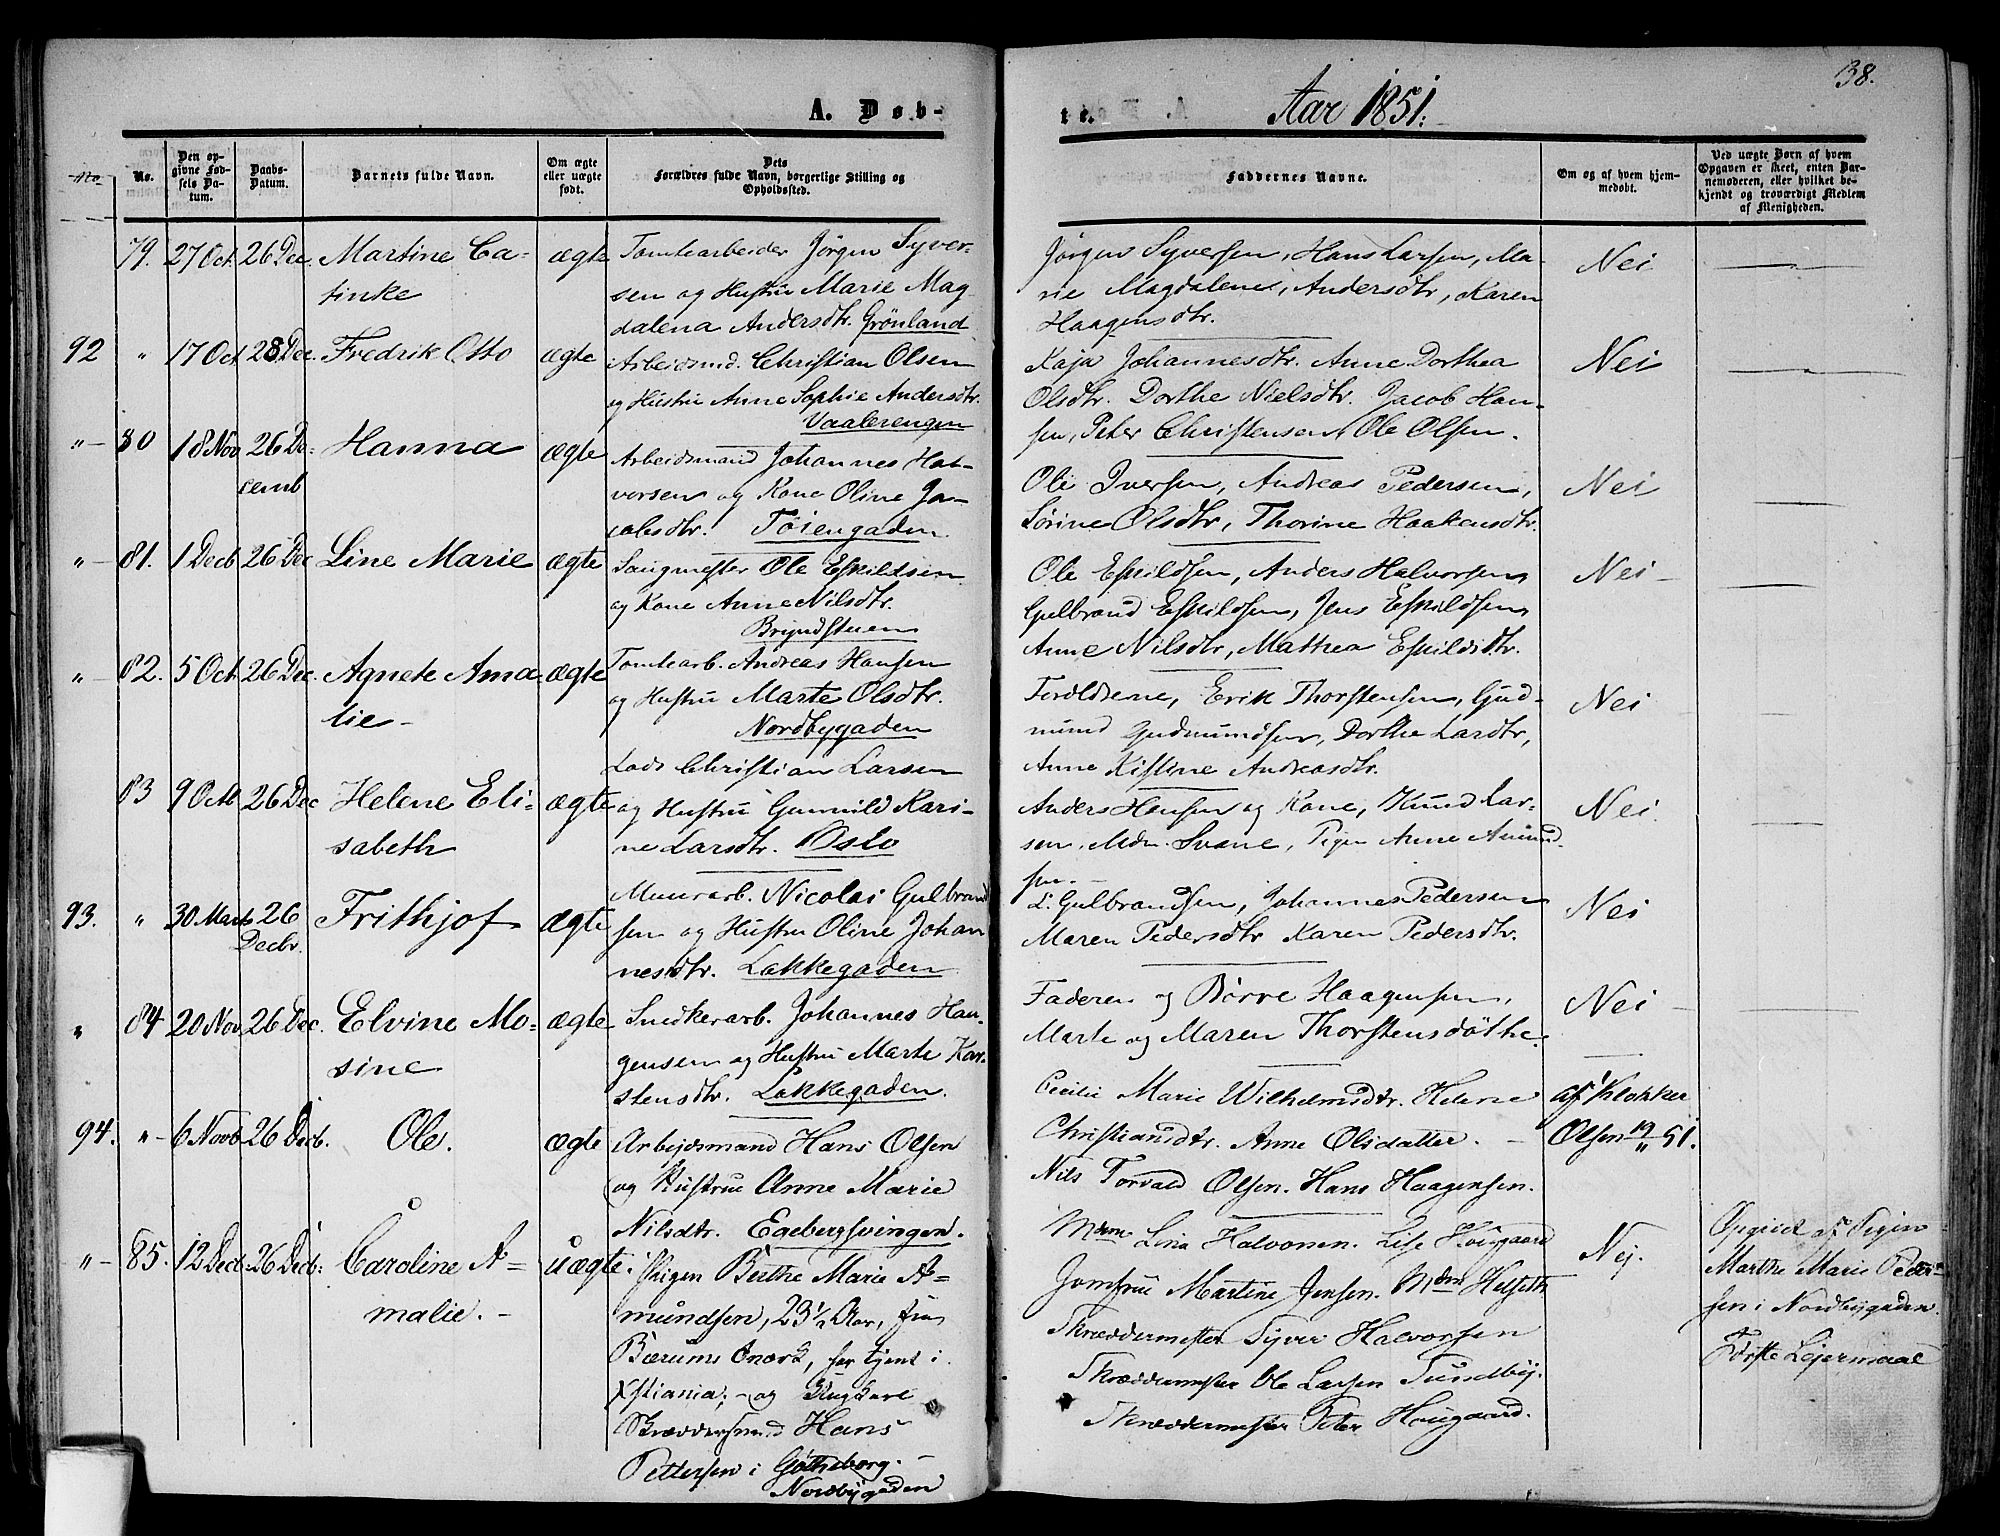 38.
A. Døb-
te.
Aar 1851.
No.
Den op-
givne Fød-
sels Da-
tum.
Daabs-
Datum.
Barnets fulde Navn.
Om ægte
eller uægte
født.
Dets
Forældres fulde Navn, borgerlige Stilling og
Opholdssted.
Faddernes Navne.
Om og af hvem hjem-
medøbt.
Ved uægte Børn af hvem
Opgaven er skeet, enten Bar-
nemoderen, eller hvilket be-
kjendt og troværdigt Medlem
af Menigheden.
79. 27 Oct. 26 Dec. Martine Ca-
tinke
ægte
Tomtearbeider Jørgen Syver-
sen og Hustru Marie Mag-
dalena Andersdtr. Grønland
Jørgen Syversen, Hans Larsen, Ma-
rie Magdalene, Andersdtr, Karen
Haagensdtr.
Nei
92 " 17 Oct 28 Dec. Fredrik Otto
ægte
Arbeidsmd. Christian Olsen
og Hustru Anne Sophie Andersdtr.
Vaalerengen
Kaja Johannesdtr. Anne Dorthea
Olsdtr. Dorthe Nielsdtr. Jacob Han-
sen, Peter Christensen, Ole Olsen.
Nei
" 80 18 Nov 26 De-
cemb
Hanna
ægte
Arbeidsmand Johannes Hal-
vorsen og Kone Oline Ja-
cobsdtr. Tøiengaden
Ole Iversen, Andreas Pedersen,
Sørine Olsdtr, Thorine Haakensdtr.
Nei
" 81. 1 Decb 26 Dec Line Marie
ægte
Saugmester Ole Eskildsen
og Kone Anne Nilsdtr.
Bryndstuen
Ole Eskildsen, Anders Halvorsen,
Gulbrand Eskildsen, Jens Eskildsen,
Anne Nilsdtr, Mathea Eskildsdtr.
Nei
" 82. 5 Oct 26 Dec. Agnete Ama
lie
ægte
Tomtearb. Andreas Hansen
og Hustru Marte Olsdtr.
Nordbygaden
Forældrene, Erik Thorstensen, Gud-
mund Gudmundsen, Dorthe Larsdtr,
Anne Kistine Andreasdtr.
Nei
83 9 Octb 26 Dec Helene Eli-
sabeth
ægte
Lods Christian Larsen
og Hustru Gunnild Kari-
ne Larsdtr. Oslo
Anders Hansen og Kone, Knud Lar-
sen, Mdm. Svane, Pigen Anne Amund
sen.
Nei
93. " 30 Marts 26
Decbr.
Frithjof
ægte
Muurarb. Nicolai Gulbrand
sen og Hustru Oline Johan
nesdtr. Lakkegaden
L. Gulbrandsen, Johannes Pedersen
Maren Pedersdtr Karen Pedersdtr.
Nei
" 84 20 Nov 26 Dec. Elvine Mo-
sine
ægte
Snedkerarb. Johannes Haa-
gensen og Hustru Marte Kar-
stensdtr. Lakkegaden.
Faderen og Børre Haagensen,
Marte og Maren Thorstensdøttre.
Nei
94. " 6 Novb 26 Decb. Ole.
ægte
Arbejdsmand Hans Olsen
og Hustrue Anne Marie
Nilsdtr. Egebergsvingen.
Cecilie Marie Wilhelmsdtr. Helene
Christiansdtr. Anne Olsdatter.
Nils Torvald Olsen. Hans Haagensen.
af Klokker
Olsen 19/11 51.
" 85. 12 Decb 26 Decb: Caroline A-
malie.
uægte
Pigen Berthe Marie A-
mundsen, 23½ Aar, fra
Bærums Værk, har tjent i
Xstiania, og Ungkarl
Skræddersvend Hans
Pettersen i Gøtheborg.
Nordbygaden
Mdm Lina Halvorsen. Lise Hougaard
Jomfrue Martine Jensen. Mdm Helseth
Skræddermester Syver Halvorsen
Skræddermester Ole Larsen Sundby.
Skræddermester Peter Hougaard.
Nej.
Opgivet af Pigen
Marthe Marie Peder-
sen i Nordbygaden.
Første Lejermaal